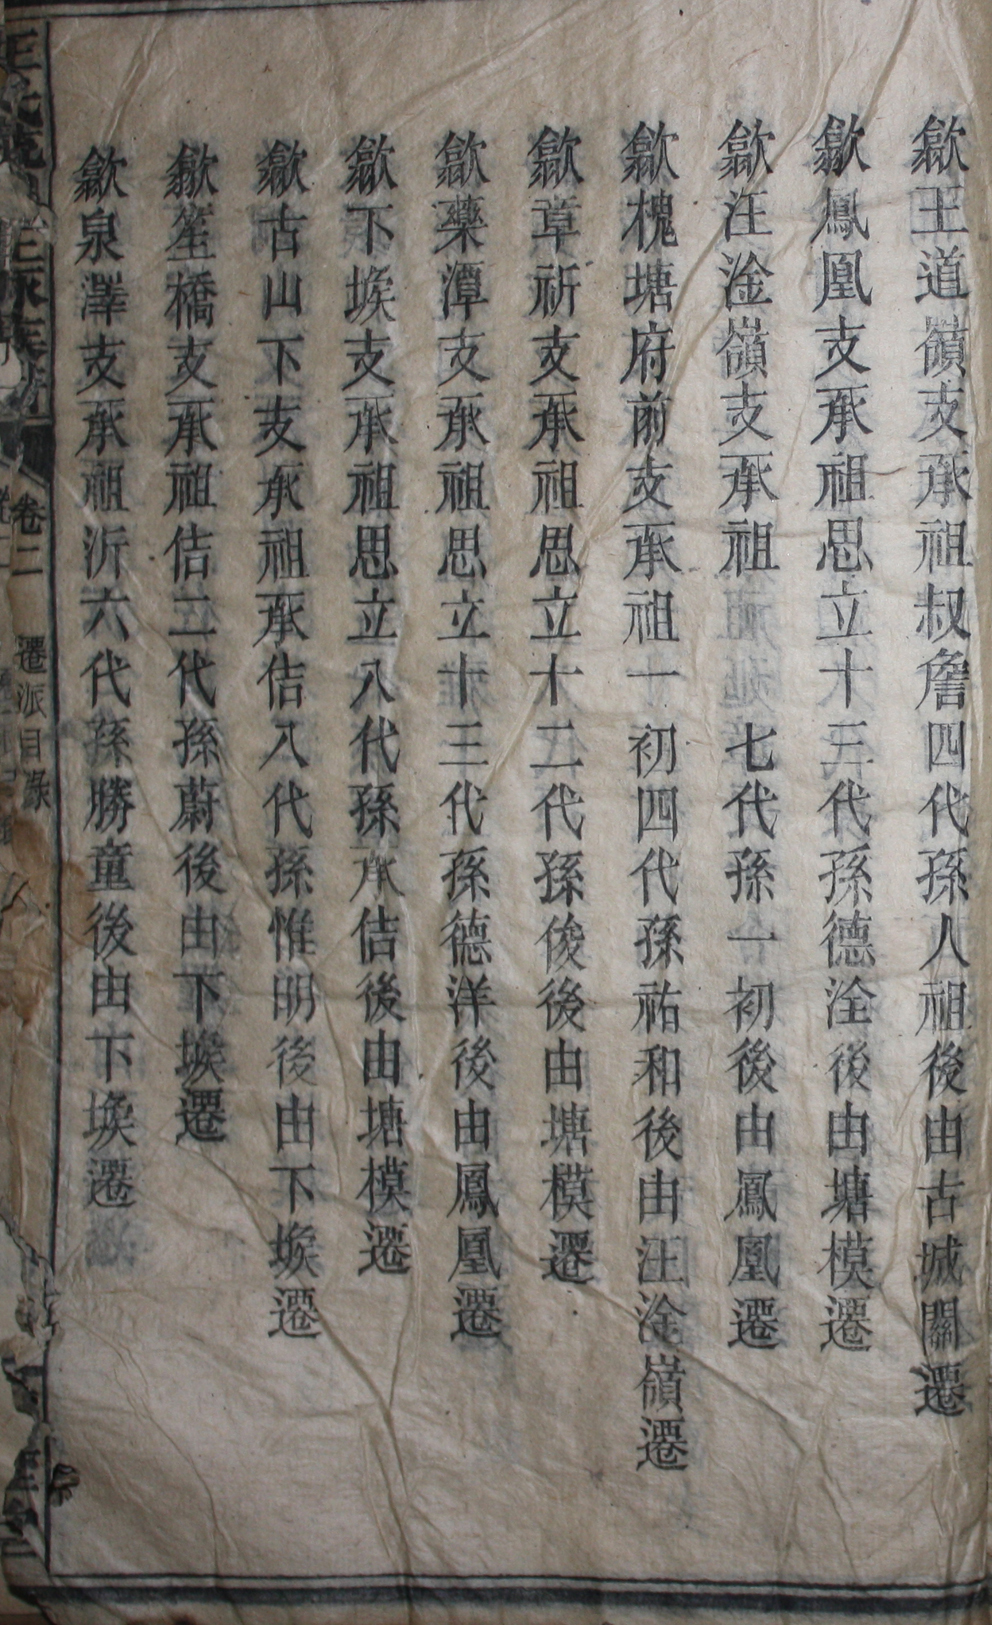 歙王道嶺支承祖叔詹四代孫人祖後由古城關遷
歙鳳凰支承祖思立十三代孫德淦後由塘模遷
歙汪淦嶺支承祖 七代孫一初後由鳳凰遷
歙槐塘府前支承祖一初四代孫祐和後由汪淦嶺遷
歙章祈支承祖思立十二代孫俊後由塘模遷
歙藥潭支承祖思立十三代孫德洋後由鳳凰遷
歙下堠支承祖思立八代孫承佶後由塘模遷
歙古山下支承祖承佶八代孫惟明後由下堠遷
歙筀橋支承祖佶二代孫蔚後由下堠遷
歙泉澤支承祖沂六代孫勝童後由下堠遷
卷二 遷派目錄